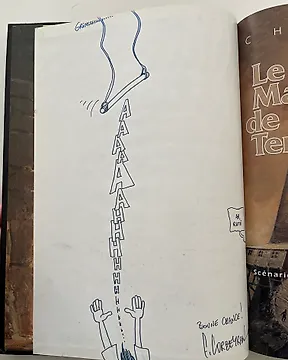 AAAAAAAHHHHHHHH
BONNE CHANCE!
Corbeyran
C H
Le
Ma
de
Ter
Scénario